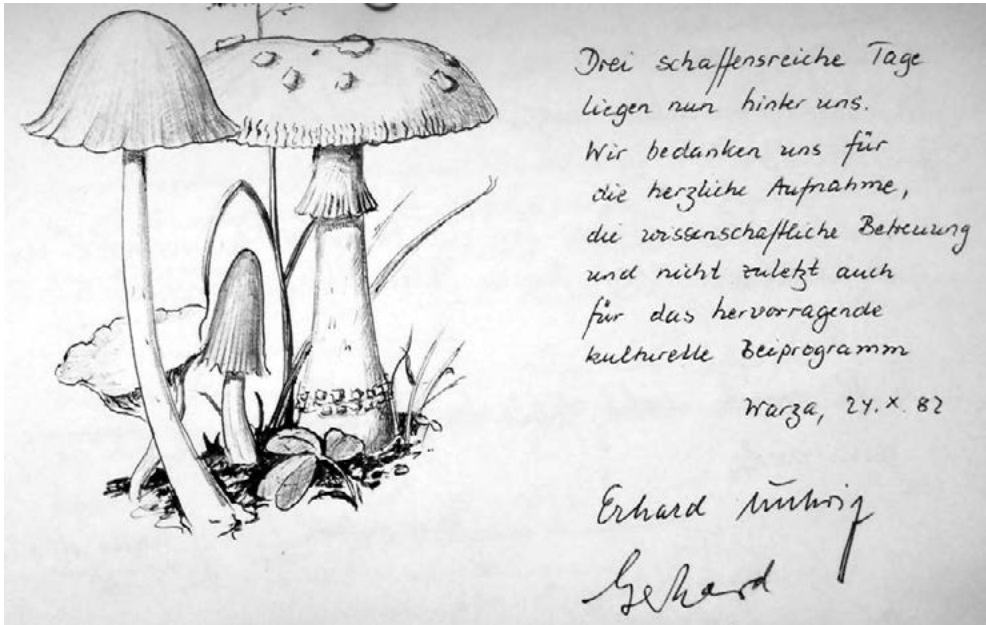 Drei schaffensreiche Tage
liegen nun hinter uns.
Wir bedanken uns für
die herzliche Aufnahme,
die wissenschaftliche Betreuung
und nicht zuletzt auch
für das hervorragende
kulturelle Beiprogramm
Warza, 24.X.82
Erhard Ludwig
Gerhard